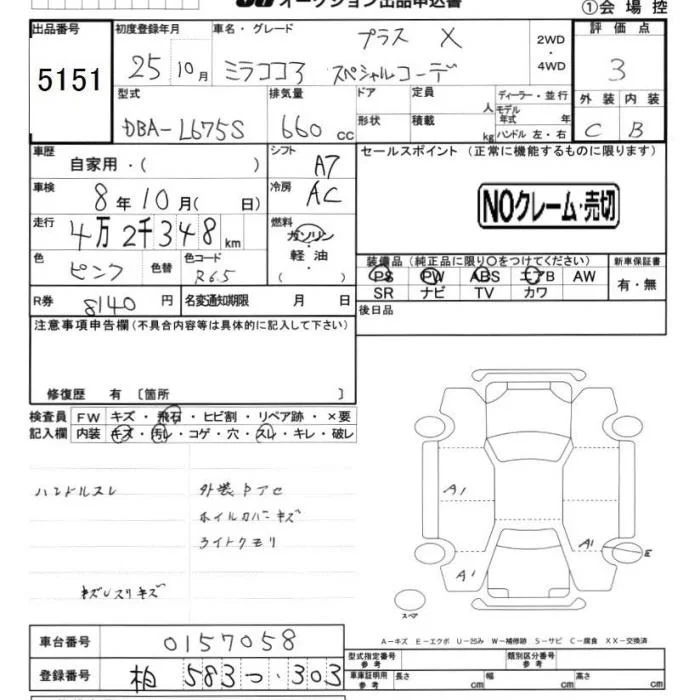 オークション出品申込書
①会場控
出品番号 初度登録年月 車名・グレード プラス X 2WD・4WD 評価点
5151 25 10月 ミラココア スペシャルコーデ 3
型式 排気量 ドア 定員 人 ディーラー・並行 外装 内装
モデル年式 年
DBA-L675S 660 cc 形状 積載 kg ハンドル 左・右 C B
車歴 自家用・( ) シフト A7 セールスポイント (正常に機能するものに限ります)
車検 8年10月( 日) 冷房 AC
NOクレーム・売切
走行 4万2千348km 燃料 ガソリン 軽油 ( )
色 ピンク 色替 色コード R65
装備品(純正品に限り〇をつけてください) 新車保証書
PS PW ABS エアB AW 有・無
SR ナビ TV カワ
R券 8140円 名変通知期限 月 日 後日品
注意事項申告欄(不具合内容等は具体的に記入して下さい)
修復歴 有 〔箇所 〕
検査員 FW キズ・飛石・ヒビ割・リペア跡・×要
記入欄 内装 キズ・汚レ・コゲ・穴・スレ・キレ・破レ
ハンドルスレ 外装
ホイルカバーキズ
ライトクモリ
キズ
A1
A1 E
A1
スペア
A-キズ E-エクボ U-凹み W-補修跡 S-サビ C-腐食 XX-交換済
車台番号 0157058
型式指定番号 参考 類別区分番号 参考
登録番号 柏 583 つ ・303
車庫証明用 参考 長さ cm 幅 cm 高さ cm